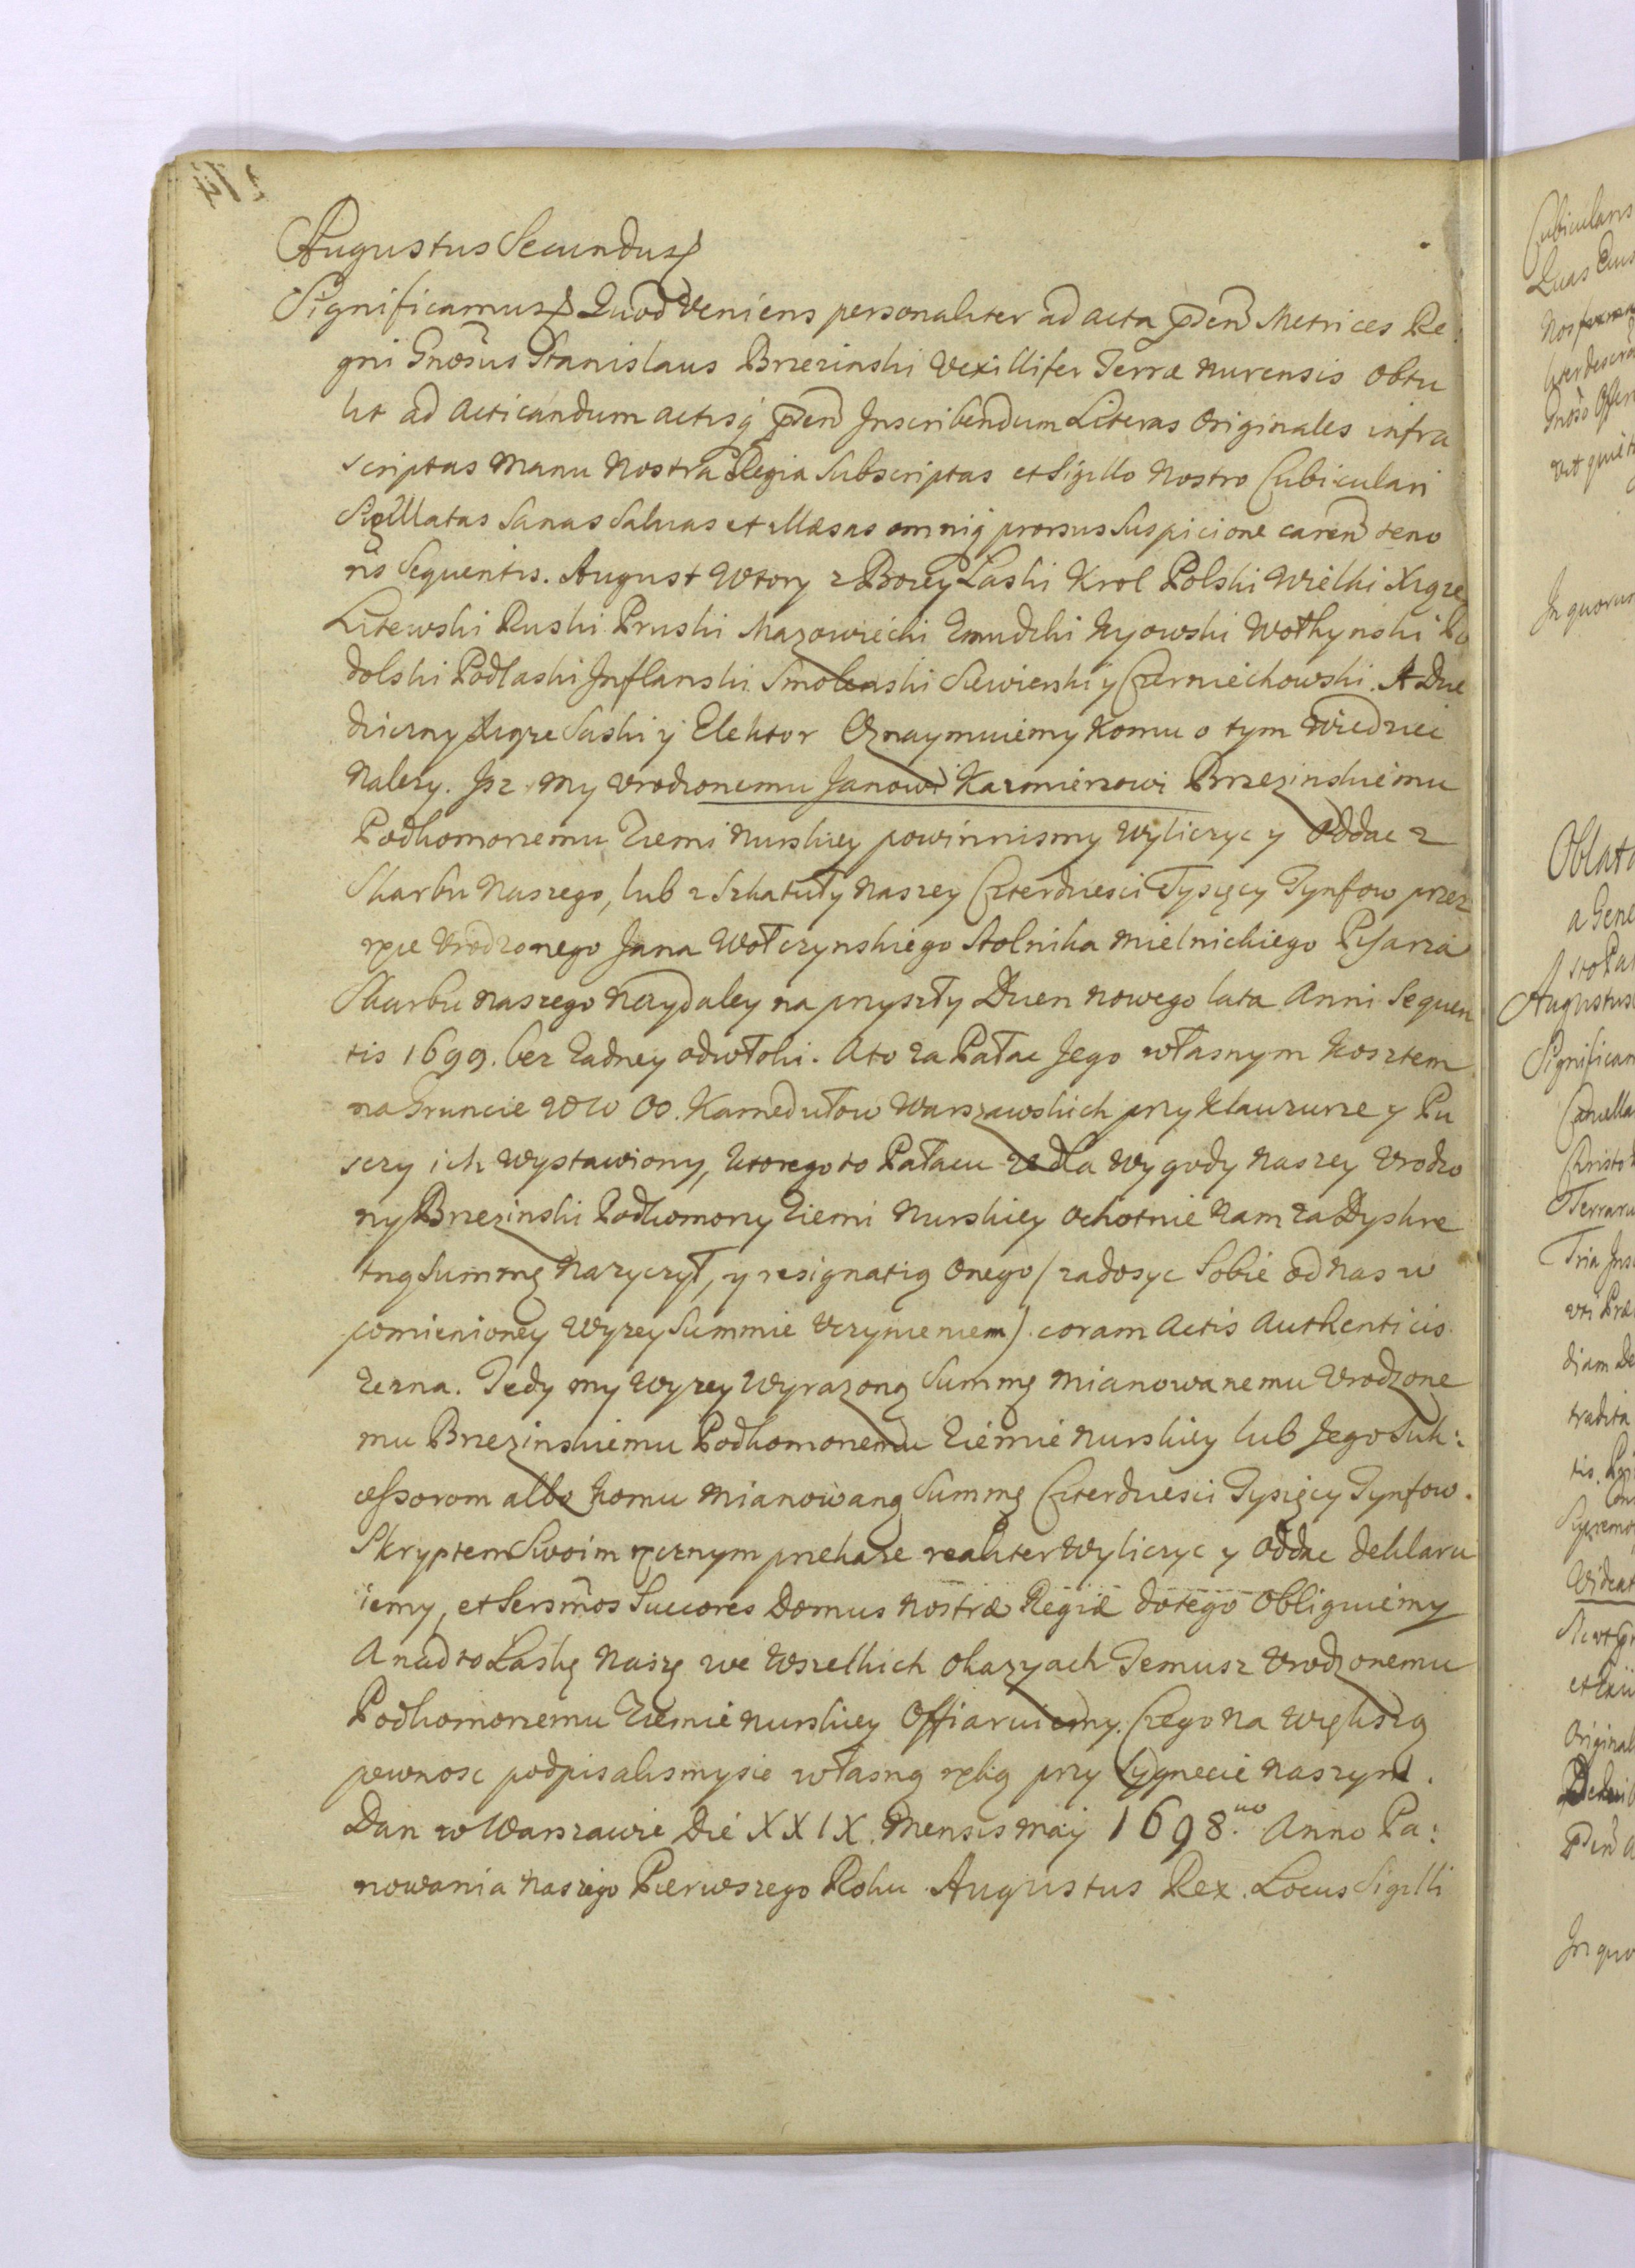 Augustus Secundus
Significamus Quod Veniens personaliter ad acta pñsen Metrices Re
gni Gnosus Stanislaus Brzezinski Vexillifer Terræ Nurensis Obtu
lit ad Acticandum actisq pñsen Inscribendum Literas Originales infra
scriptas Manu Nostra Regia Subscriptas et Sigillo Nostro Cubiculari
Sigillatas Sanas Saluas et illæsas omniq prorsus Suspicione caren teno
ris Sequentis. August Wtory z Bozey Laski Krol Polski Wielki Xiąze
Litewski Ruski Pruski Mazowiecki Zmudzki Kyowski Wołhynski Po
dolski Podlaski Inflanski Smolenski Siewierski y Czerniechowski. A Dzie
dziczny Xiąze Saski y Elektor Oznaymuiemy Komu o tym Wiedziec
Nalezy. Isz My Vrodzonemu Janowi Kazmierzowi Brzezinskiemu
Podkomorzemu Ziemi Nurskiey powinnismy Wyliczyc y Oddac z
Skarbu Naszego, lub z Szkatuły Naszey Czterdziesci Tysięcy Tynfow przez
ręce Vrodzonego Jana Wołczynskiego Stolnika Mielnickiego Pisarza
Skarbu Naszego Naydaley na przyszły Dzien Nowego lata Anni Sequen
tis 1699. bez Zadney odwłoki. A to za Pałac Jego własnym Kosztem
na Gruncie WW OO. Kamedułow Warszawskich przy Klauzurze y Pu
sczy ich Wystawiony, Ktorego to Pałacu ze dla Wygody Naszey Vrodzo
ny Brzezinski Podkomorzy Ziemi Nurskiey Ochotnie Nam za Dyskre
tną Summę Nazyczył, y resignatią Onego / zadosyc Sobie od Nas w
pomienioney Wyzey Summie Vczynieniem / coram Actis Authenticis
Zezna. Tedy my Wyzey Wyrazoną Summę Mianowanemu Vrodzone
mu Brzezinskiemu Podkomorzemu Ziemie Nurskiey lub Jego Suk:
cessorom albo Komu Mianowaną Summę Czterdziesci Tysięcy Tynfow.
Skryptem Swoim ręcznym przekaze realiter Wyliczyc y Oddac deklaru
iemy, et Sersmos Succores Domus Nostræ Regiæ do tego Obliguiemy
A nadto Laskę Naszę we Wszelkich Okazyach Temusz Vrodzonemu
Podkomorzemu Ziemie Nurskiey Offiaruiemy. Czego Na Większą
pewnosc podpisalismy sie własną ręką przy Sygnecie Naszym.
Dan w Warszawie Die XXIX. Mensis Maij 1698. Anno Pa:
nowania Naszego Pierwszego Roku Augustus Rex. Locus Sigilli
Cubicularis
Oblata
Augustus
Tria
tradita